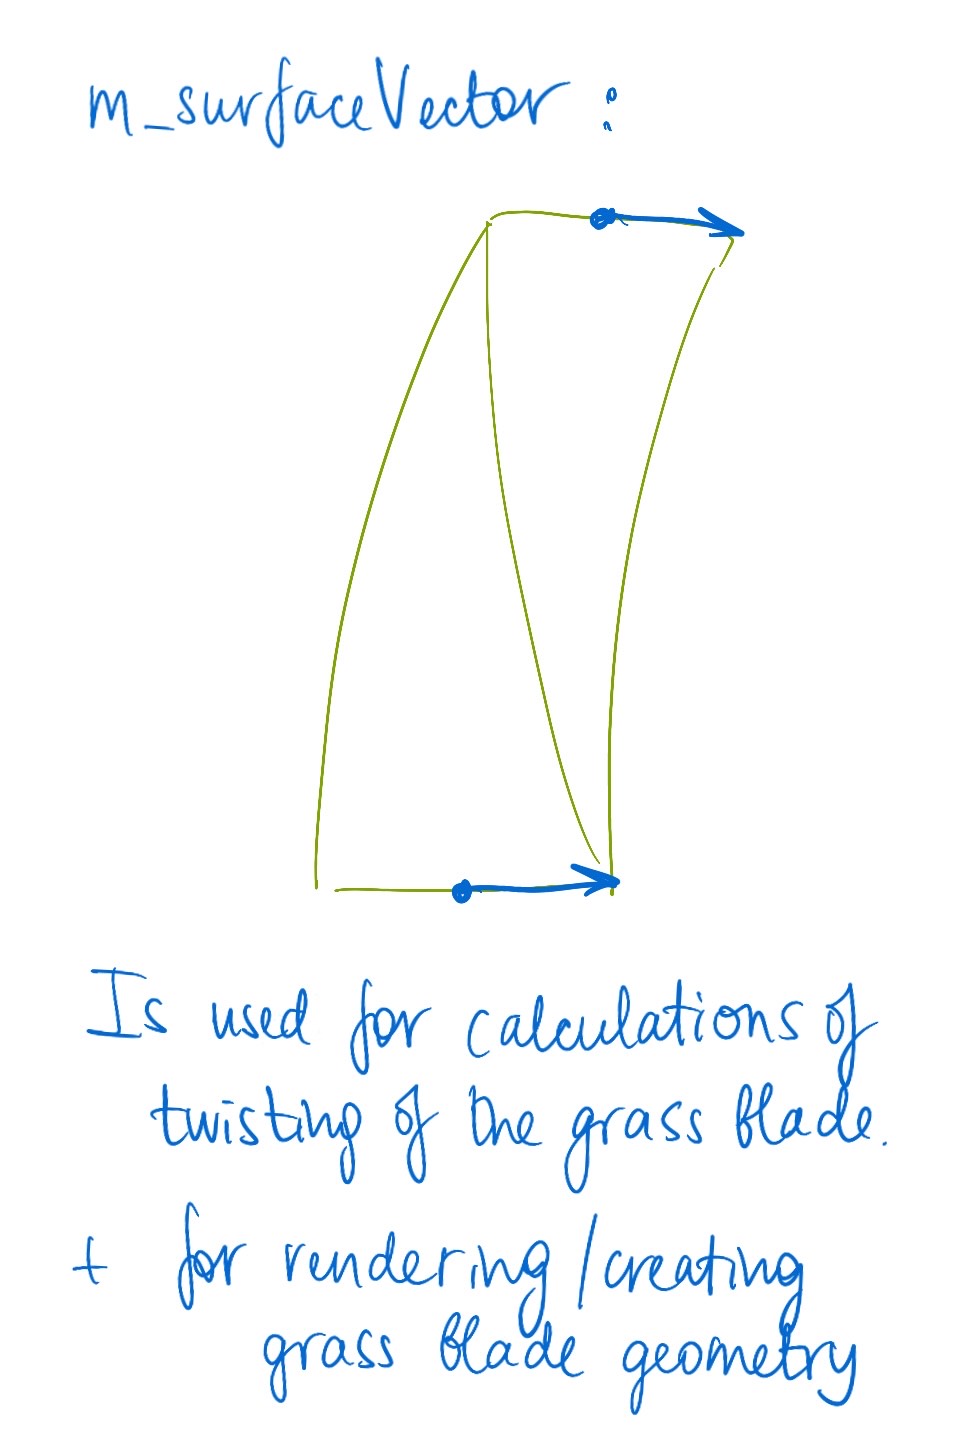 m_surfaceVector:
Is used for calculations of
twisting of the grass blade.
+ for rendering/creating
grass blade geometry